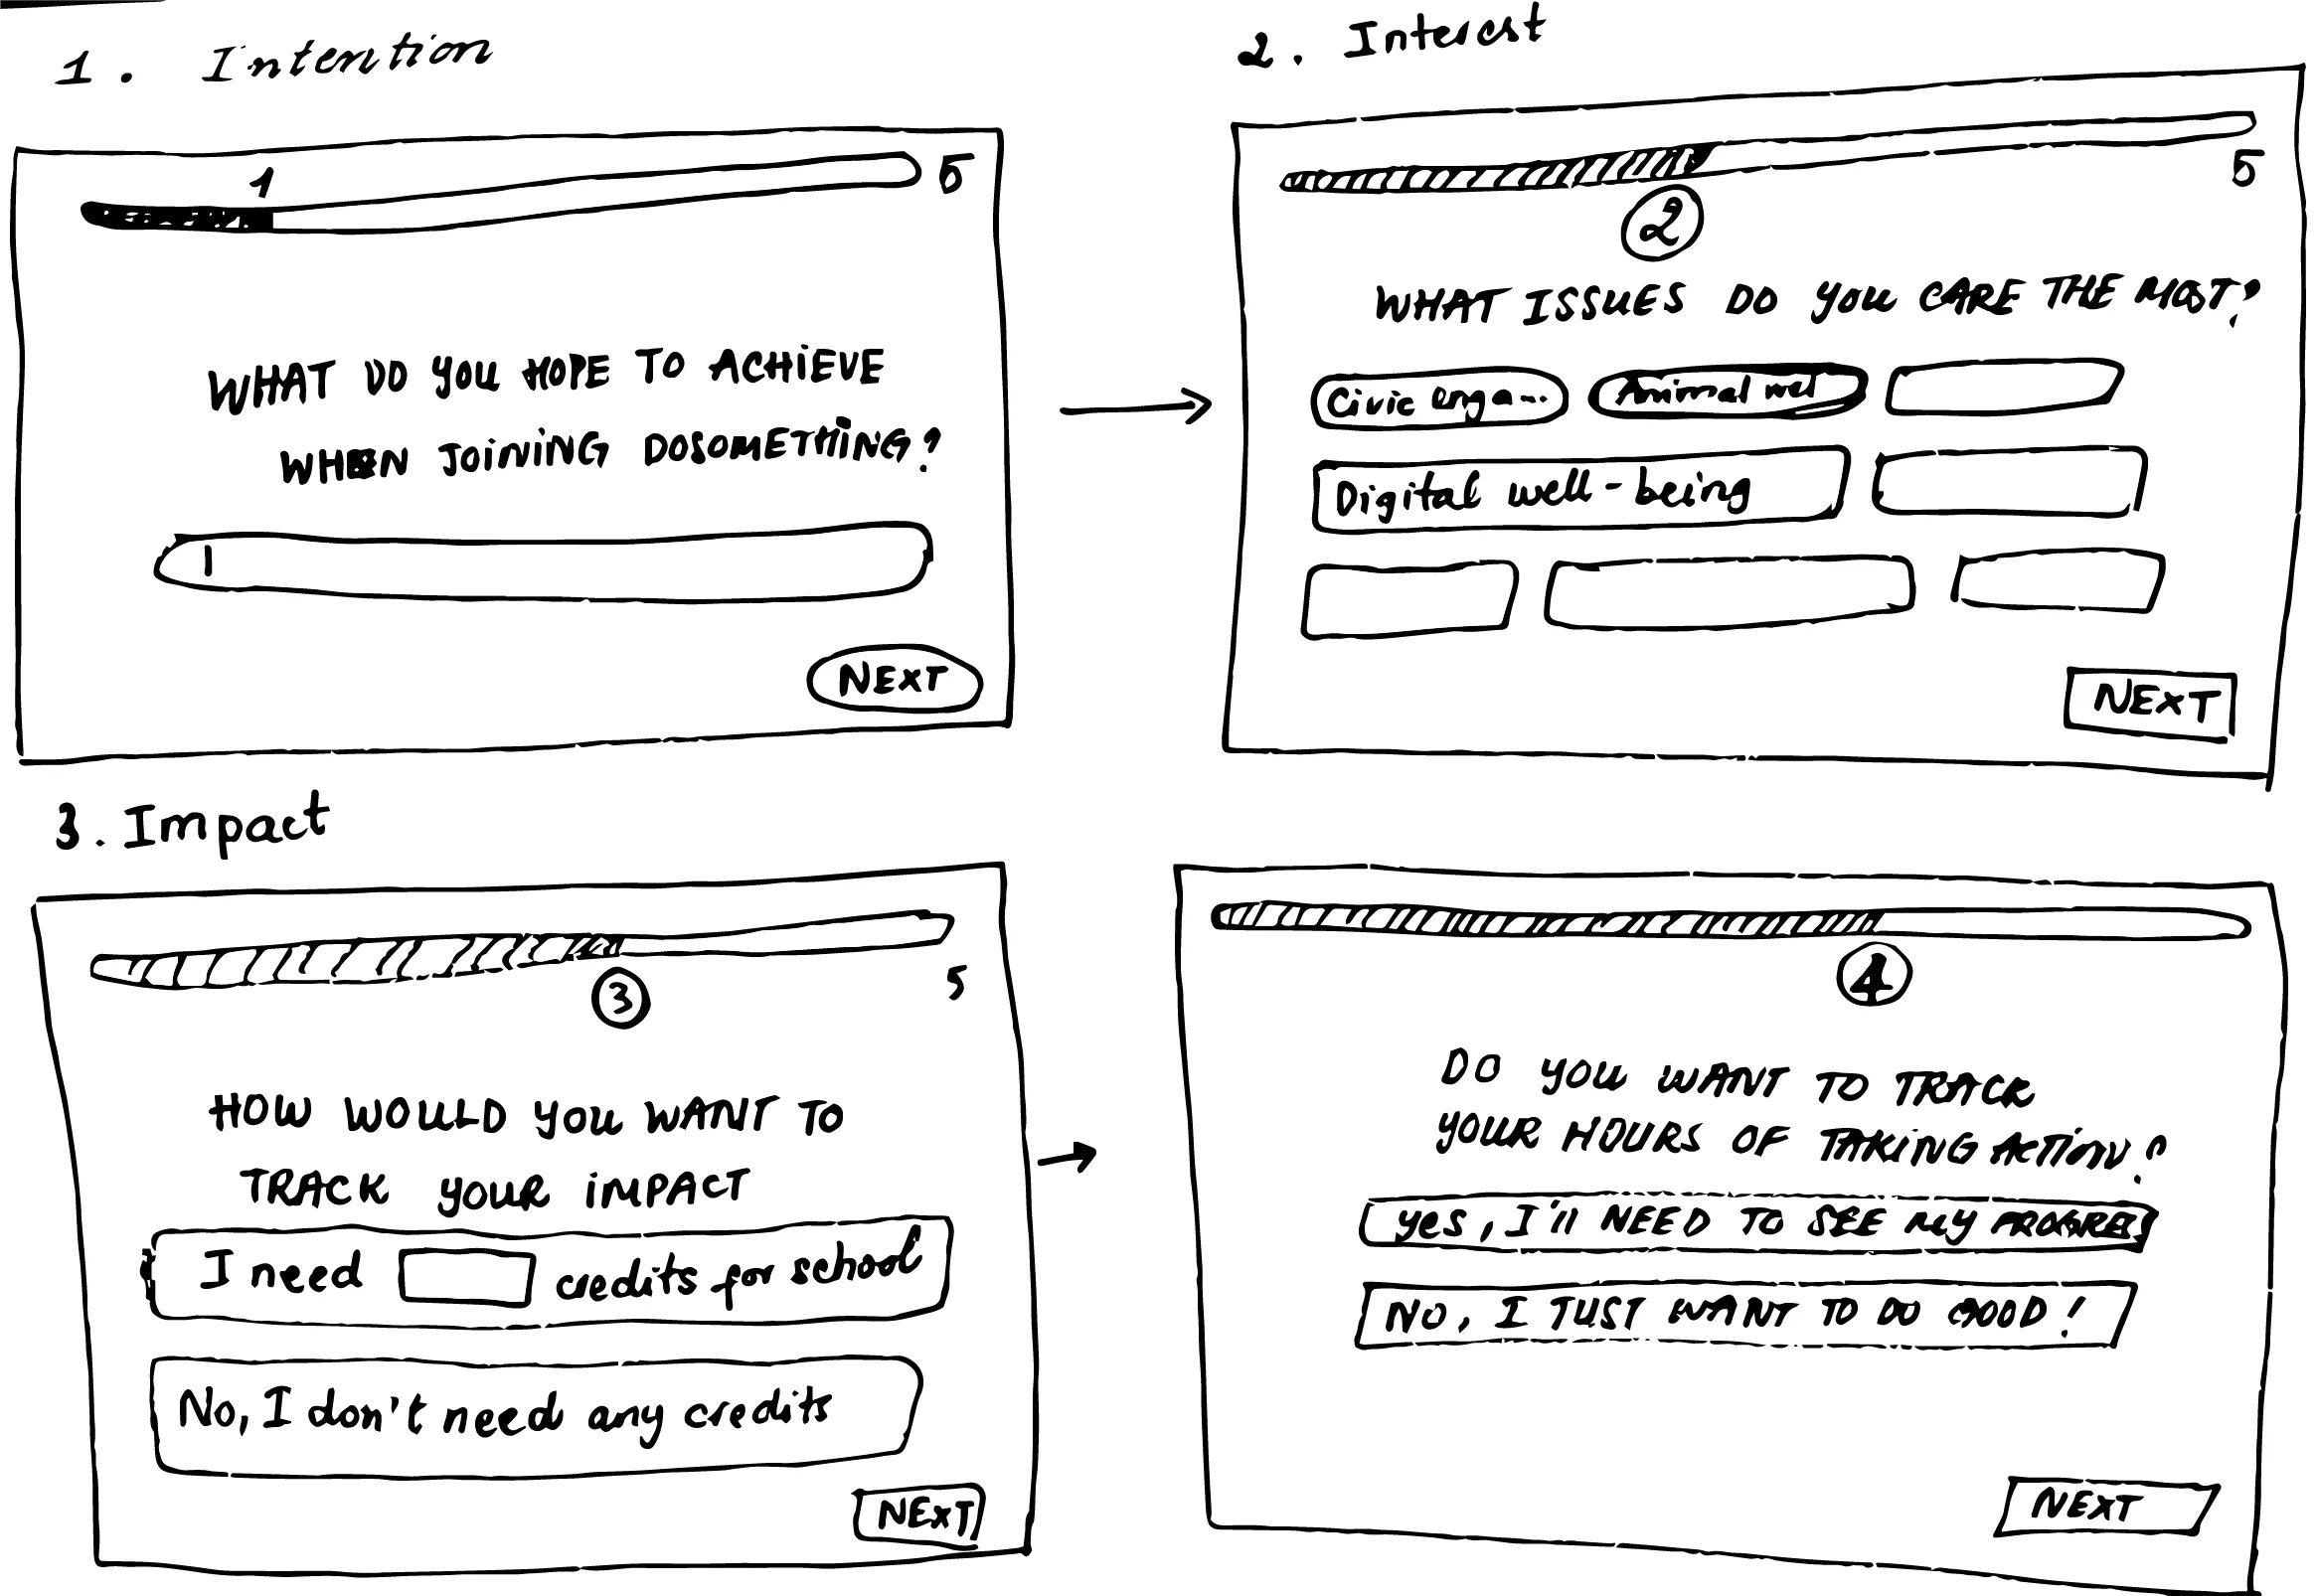 1. Intention
1
5
WHAT DO YOU HOPE TO ACHIEVE
WHEN JOINING DOSOMETHING?
NEXT
2. Interest
5
2
WHAT ISSUES DO YOU CARE THE MOST?
Civic enga... Animal wel
Digital well-being
NEXT
3. Impact
3
5
HOW WOULD YOU WANT TO
TRACK YOUR IMPACT
I need credits for school
No, I don't need any credits
NEXT
4
DO YOU WANT TO TRACK
YOUR HOURS OF TAKING ACTION?
Yes, I'll NEED TO SEE MY PROGRES
NO, I JUST WANT TO DO GOOD!
NEXT